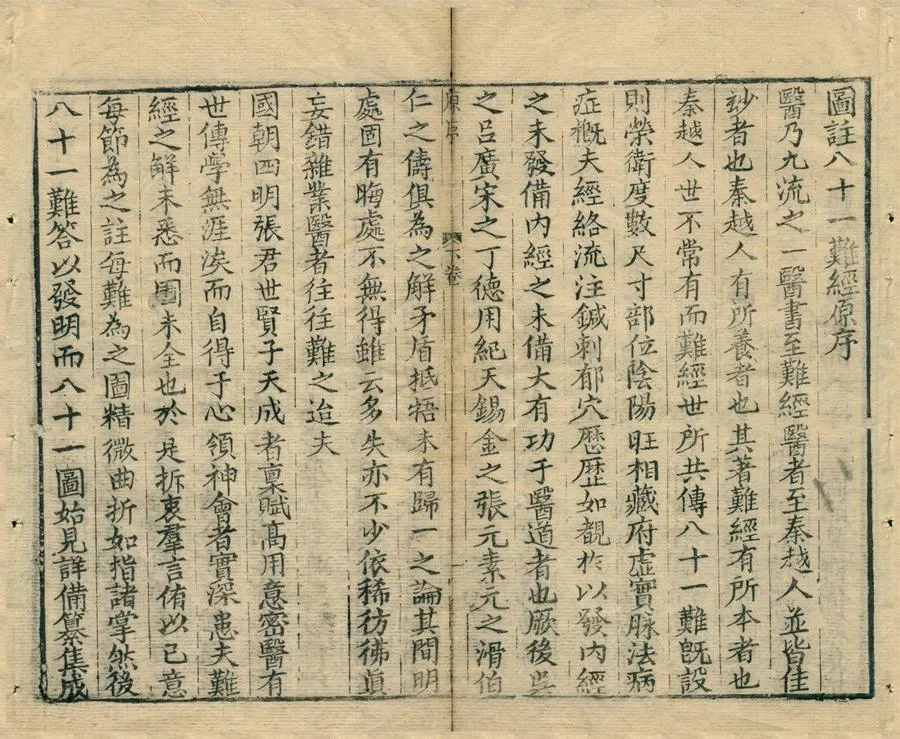 圖註八十一難經原序
醫乃九流之一醫書至難經醫者至秦越人並皆佳
玅者也秦越人有所養者也其著難經有所本者也
秦越人世不常有而難經世所共傳八十一難旣設
則榮衛度數尺寸部位陰陽旺相藏府虛實脉法病
症槪夫經絡流注鍼刺郁穴歷歷如覩於以發內經
之未發備內經之未備大有功于醫道者也厥後吳
之呂廣宋之丁德用紀天錫金之張元素元之滑伯
原序
下卷
一
仁之儔俱為之解矛盾抵牾未有歸一之論其間明
處固有晦處不無得雖云多失亦不少依稀彷彿眞
妄錯雜業醫者往往難之迨夫
國朝四明張君世賢子天成者稟賦高用意密醫有
世傳學無涯涘而自得于心領神會者實深患夫難
經之解未悉而圖未全也於是折衷羣言侑以已意
每節為之註每難為之圖精微曲折如指諸掌然後
八十一難答以發明而八十一圖始見詳備纂集成